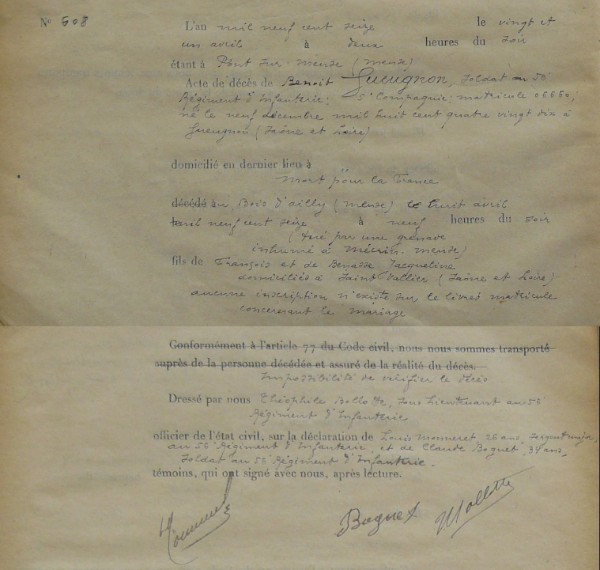 N° 608
L'an mil neuf cent seize le vingt et
un avril à deux heures du soir
étant à Pont sur Meuse (Meuse)
Acte de décès de Benoit Gueugnon, soldat au
Régiment d'Infanterie, 5e Compagnie, matricule 06660,
né le neuf décembre mil huit cent quatre vingt dix à
Gueugnon (Saône et Loire)
domicilié en dernier lieu à
Mort pour la France
décédé au Bois d'ailly (Meuse) le huit avril
mil neuf cent seize à neuf heures du soir
(tué par une grenade
inhumé à Mécrin, Meuse)
fils de François et de Jacqueline
domiciliés à Saint Vallier (Saône et Loire)
aucune inscription n'existe sur le livret matricule
concernant le mariage
Conformément à l'article 77 du Code civil, nous nous sommes transporté
auprès de la personne décédée et assuré de la réalité du décès
Impossibilité de vérifier le décès
Dressé par nous Théophile, sous Lieutenant au
Régiment d'Infanterie
officier de l'état civil, sur la déclaration de Louis Monneret, ans, sergent major
au Régiment d'Infanterie et de Claude Boguet, ans,
soldat au Régiment d'Infanterie.
témoins, qui ont signé avec nous, après lecture.
Boguet